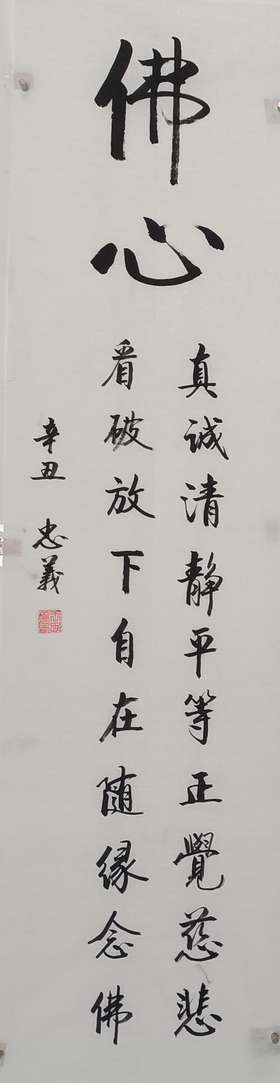 佛心
真誠清靜平等正覺慈悲
看破放下自在隨緣念佛
辛丑 忠義